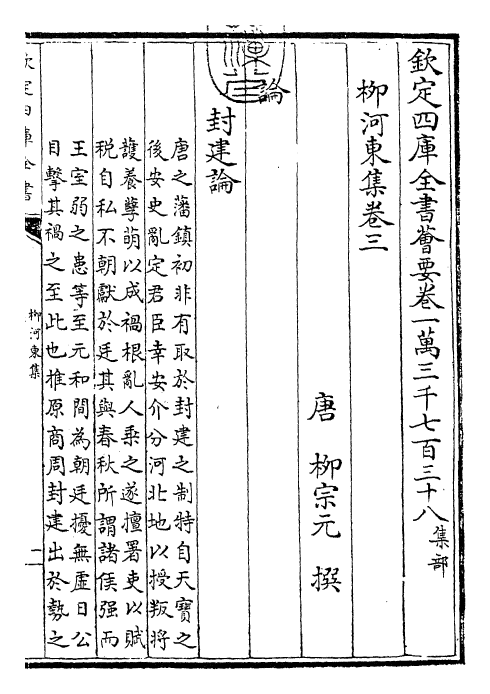 欽定四庫全書薈要卷一萬三千七百三十八集部
柳河東集卷三
唐 柳宗元 撰
論
封建論
唐之藩鎮初非有取於封建之制特自天寶之
後安史亂定君臣幸安介分河北地以授叛將
護養孽萌以成禍根亂人乘之遂擅署吏以賦
税自私不朝獻於廷其與春秋所謂諸侯强而
王室弱之患等至元和間為朝廷擾無虚日公
目擊其禍之至此也推原商周封建出於勢之
欽定四庫全書
柳河東集